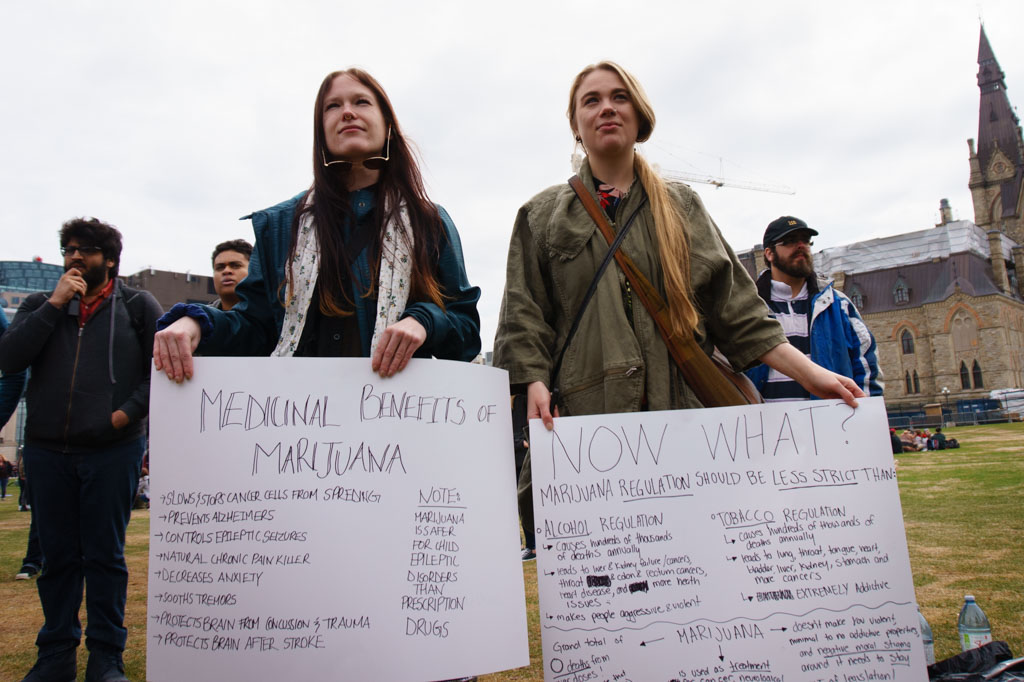 MEDICINAL BENEFITS OF
MARIJUANA
→SLOWS/STOPS CANCER CELLS FROM SPREDING
→PREVENTS ALZHEIMERS
→CONTROLS EPILEPTIC SEIZURES
→NATURAL CHRONIC PAIN KILLER
→DECREASES ANXIETY
→SOOTHS TREMORS
→PROTECTS BRAIN FROM CONCUSSION & TRAUMA
→PROTECTS BRAIN AFTER STROKE
NOTE:
MARIJUANA
IS SAFER
FOR CHILD
EPILEPTIC
DISORDERS
THAN
PRESCRIPTION
DRUGS
NOW WHAT?
MARIJUANA REGULATION SHOULD BE LESS STRICT THAN:
ALCOHOL REGULATION
causes hundreds of thousands
of deaths annually
leads to liver & kidney failure/cancers,
throat & colon & rectum cancers,
heart disease, and more heath
issues
makes people aggressive & violent
TOBACCO REGULATION
causes hundreds of thousands of
deaths annually
leads to lung, throat, tongue, heart,
bladder, liver, kidney, stomach and
more cancers
EXTREMELY Addictive
Grand total of
O deaths from
MARIJUANA
is used as treatment
cancer, neurological
doesnt make you violent,
minimal to no addictive properties,
and negative moral stigma
around it needs to stay
out of legislation!